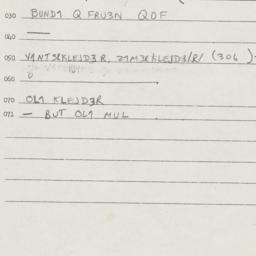 030 BUNDꟼ Q FRUƎN QOF
040 —
050 VꟼNTSƐKLEJDƐR, ZꟼMƐRKLEJDƐ/R/ (306)
060
070 OLꟼ KLEJDƐR
071 — BUT OLꟼ MUL